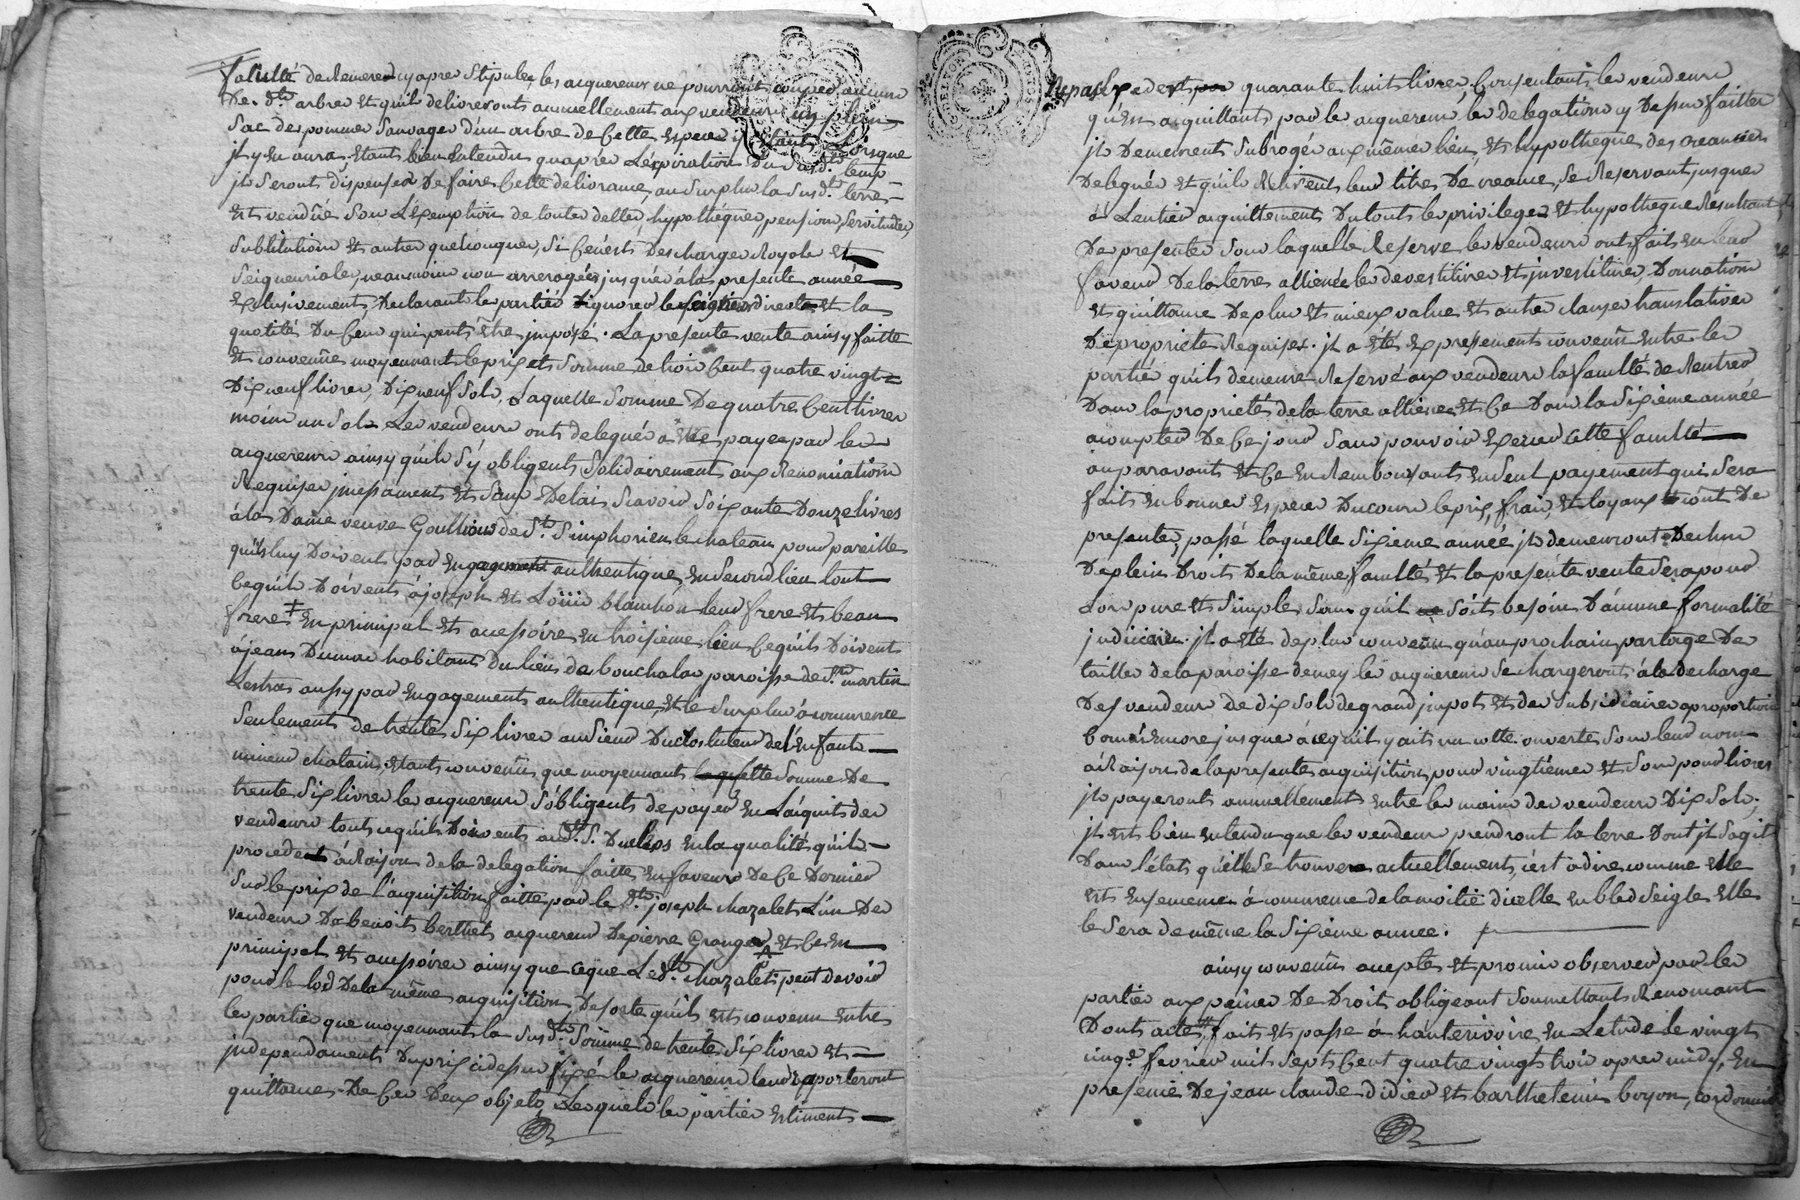 faculté de Remered cy apres Stipulée, les acquereurs ne pourront couper aucun
De. dts arbres Et quils delivreronts annuellement aux vendeurs un plein
Sac de pommes Sauvages d'un arbre de Cette Espece y Etants lorsque
jl y En aura. Etants bien Entendu qu'apres L'expiration Du Susdt. temp
jls Seronts dispensés De faire Cette delivrance, au Surplus la Susdt. terre
Est vendüe Sous L'Exemption de toutes dettes, hypothéques, pensions, Servitudes,
Substitutions Et autres quelconques, Si Ce n'est Des charges Royales Et
Seigneuriales, neanmoins non arreragées jusques à la presente année
Exclusivements, Declarants les parties Dignorer le Seigneur directe Et la
quotité Du Cens qui peuts Être jmposé. La presente vente ainsy faitte
Et convenüe moyennant le prix Et Somme de trois Cent quatre vingt
Dix neuf livres, Dix neuf Sols, Laquelle Somme De quatre Cent livres
moins un Sols Les vendeurs onts delegués a Etre payée par les
acquereurs ainsy quils S'y obligents Solidairement aux Renonciations
Requises jncessaments Et Sans Delais Scavoir Soixante Douze livres
à la Dame veuve Goullious de St. Simphorien le chateau pour pareille
quils luy Doivents par Engagement authentique, En Second lieu tout
Ce quils Doivents à joseph Et Loüis blanchon leur frere Et beau
frere ‡ En principal Et accessoires, En troisieme lieu Ce quils Doivents
à jean Dumas habitant du lieu de bouchala paroisse de St. martin
Lestra aussy par Engagements authentique, Et le Surplus à concurrence
Seulements de trente Six livres au Sieur Duclos tuteur de l'Enfants
mineur chatain, Etants convenus que moyennants laquelle Somme De
trente Six livres les acquereurs S'obligents de payer En L'acquits des
vendeurs touts ce quils Doivents audt. S. Duclos En la qualité quils
procedent à Raison de la delegation faitte En faveur De Ce Dernier
Sur le prix de l'acquisition faitte par le dt. joseph chazalets L'un Des
vendeurs De benoit berthet acquereur De pierre Granger Et Ce En
principal Et accessoires ainsy que ce que Ledt. chazalets peut devoir
pour le lod De la même acquisition, De Sorte quils Est convenu Entre
les parties que moyennants la Susdt. Somme de trente Six livres Et
jndependaments Du prix cidessus fixé les acquereurs leur rapporteront
quittances De Ces Deux objets, Lesquels les parties Estiments
quarante huit livres, Consentants les vendeurs
qu'En acquittants par les acquereurs les delegations cy Dessus faittes
jls Demeurents Subrogés aux mêmes lieu, Et hypotheque des creanciers
Delegués Et quils Retirent leur titres De creance, Se Reservant jusques
à L'entier acquittement Du touts les privileges Et hypotheque Resultant
De presentes Sous laquelle Reserve les vendeurs onts faits En leur
faveur De la terre alliénée les devestitures Et jnvestitures, Donnation
Et quittance De plus Et mieux value Et autres clauses translatives
De proprieté Requises. jl a Eté Expressements convenu Entre les
parties quils demeure Reservé aux vendeurs la faculté de Rentrer
Dans la proprietés de la terre alliénée Et Ce Dans la Sixième année
acompter De Ce jour Sans pouvoir Exercer cette faculté
auparavants Et Ce En Remboursants En Seul payement qui Sera
faits En bonnes Especes Ducours le prix, frais, Et loyaux coût De
presentes, passé laquelle Sixieme année jls demeuront Dechus
De plein Droits De la même faculté Et la presente vente Sera pour
Lors pure Et Simple, Sans quil Soits besoin D'aucune formalité
judiciaire. jl a Eté de plus convenu qu'au prochain partage De
tailles de la paroisse les acquereurs Se chargeronts à la decharge
Des vendeurs de dix Sols de grand jmpots Et des Subsidiaires a proportion
Comme Encore jusque à ce quil y aits un cotte ouverte Sous leur nom
à Raison de la presente acquisition pour vingtiemes Et Sous pour livres
jls payeronts annuellements Entre les mains des vendeurs Dix Sols.
jl est bien Entendu que les vendeurs prendront la terre Dont jl Sagit
Dans l'états qu'elle Se trouvera actuellements, c'est adire comme Elle
est Ensemencée à concurrence de la moitié d'icelle En bled Seigle Elle
le Sera de même la Sixieme année.
ainsy convenus acceptés Et promis observer par les
parties aux peines De Droits, obligeant Soumettants Renoncant
Donts acte, faits Et passé à hauterivoire En L'etude le vingt
cinqe. fevrier mil Septs Cent quatre vingts trois apres midy, En
presence De jean claude didier Et barthelemis boyon, cordonnier